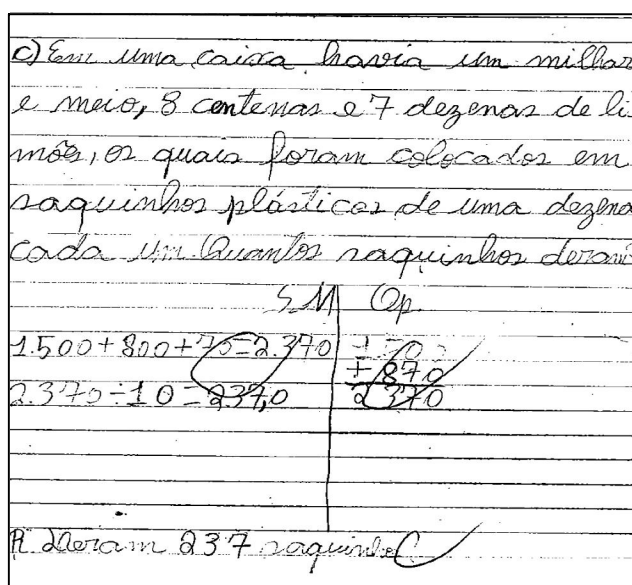 c) Em uma caixa havia um milhar
e meio, 8 centenas e 7 dezenas de li
mões, os quais foram colocados em
saquinhos plásticos de uma dezena
cada um. Quantos saquinhos deram?
S.M Op.
1.500+800+70=2.370 1500
+ 870
2.370÷10=237,0 2370
R Deram 237 saquinhos